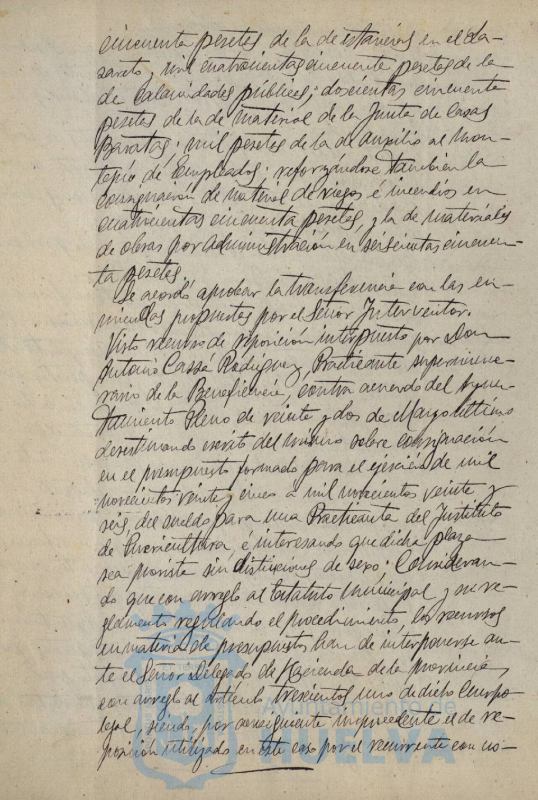 cincuenta pesetas, de la de estancias en el La-
zareto, mil cuatrocientas cincuenta pesetas de la
de calamidades públicas; doscientas cincuenta
pesetas de la de material de la Junta de Casas
Baratas; mil pesetas de la de auxilio al mon-
tepío de Empleados; reforzándose tambien la
consignación de material de riegos é incendios en
cuatrocientas cincuenta pesetas, y la de materiales
de obras por administración en seiscientas cincuen-
ta pesetas.
Se acordó aprobar la transferencia con las en-
miendas propuestas por el Señor Interventor.
Visto recurso de reposición interpuesto por Don
Antonio Cassá Rodríguez, Practicante supernume-
rario de la Beneficencia, contra acuerdo del Ayun-
tamiento Pleno de veinte y dos de Marzo último
desestimando escrito del mismo sobre consignación
en el presupuesto formado para el ejercicio de mil
novecientos veinte y cinco a mil novecientos veinte y
seis, del sueldo para una Practicanta del Instituto
de Puericultura, é interesando que dicha plaza
sea provista sin distinciones de sexo: Consideran-
do que con arreglo al Estatuto Municipal y su re-
glamento regulando el procedimiento, los recursos
en materia de presupuestos han de interponerse an-
te el Señor Delegado de Hacienda de la Provincia,
con arreglo al artículo trescientos uno de dicho Cuerpo
legal, siendo, por consiguiente improcedente el de re-
posición utilizado en este caso por el recurrente con
Ayuntamiento de
HUELVA